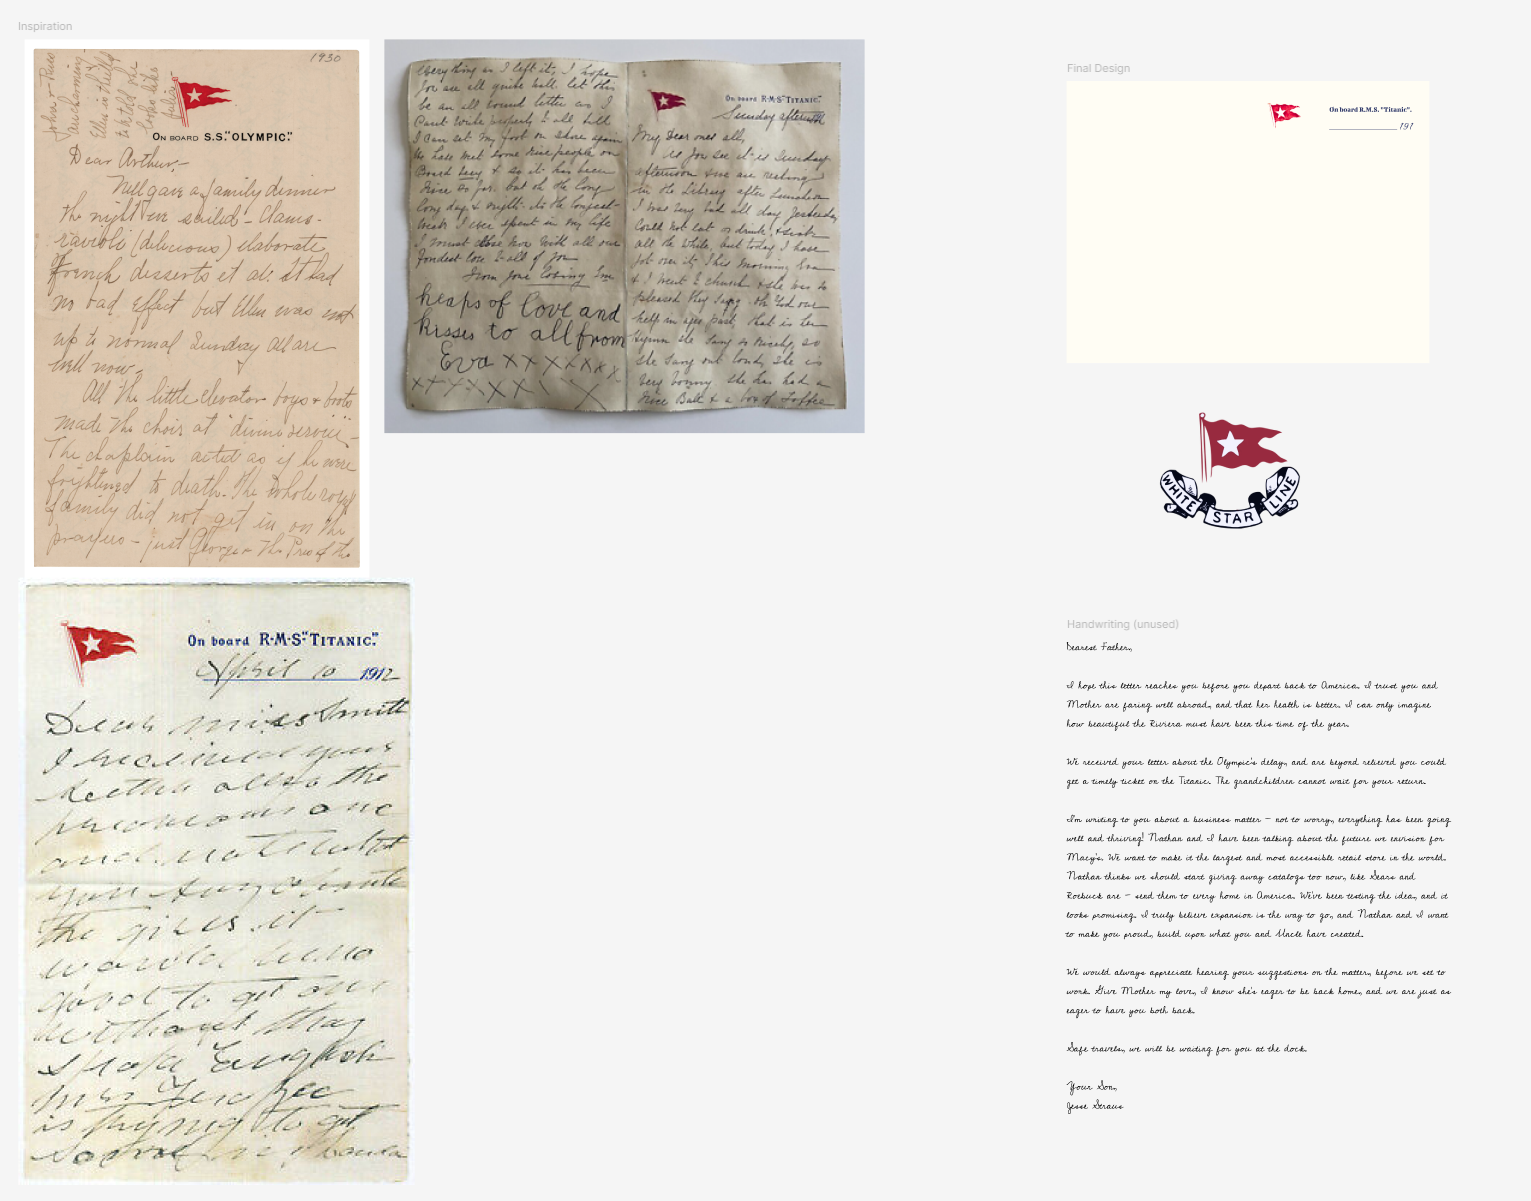 Inspiration
1930
ON BOARD S.S. "OLYMPIC."
Dear Arthur,—
Nell gave a family dinner
the night we sailed — Clams -
ravioli (delicious) elaborate
french desserts et al. It had
no bad effect but Ellen was not
up to normal Sunday all are
well now.
All the little elevator boys + boots
made the choir at "divine service" -
The chaplain acted as if he were
frightened to death. The whole royal
family did not get in on the
prayers — just George + the Pr of the
everything as I left it, I hope
you are all quite well. let this
be an all round letter as I
Cant write properly to all till
I can set my foot on shore again
We have met some nice people on
Board Lucy & so it has been
nice so far. but oh the long
long day & nights its the longest
break I ever spent in my life
I must close now with all our
fondest love to all of you
from your loving Em
heaps of love and
kisses to all from
Eva x x x x x x x
x x x x x x x x
On board R·M·S "TITANIC."
Sunday afternoon
My Dear ones all,
As you see it is Sunday
afternoon & we are resting
in the Library after Luncheon
I was very bad all day Yesterday
Could not eat or drink, & sick
all the while, but today I have
got over it, This morning Eva
& I went to church & she was so
pleased they sang oh God our
help in ages past, that is her
Hymn she sang so nicely, so
she sang out loudly she is
very bonny She has had a
nice Ball & a box of Toffee
On board R·M·S "TITANIC."
April 10 1912
Dear Miss Smith
I received your
letter also the
one
and
the girls it
would
good to get
without they
speak English
Mrs
is trying to get
Final Design
On board R.M.S. "Titanic".
191
WHITE STAR LINE
Handwriting (unused)
Dearest Father,
I hope this letter reaches you before you depart back to America. I trust you and
Mother are faring well abroad, and that her health is better. I can only imagine
how beautiful the Riviera must have been this time of the year.
We received your letter about the Olympic's delay, and are beyond relieved you could
get a timely ticket on the Titanic. The grandchildren cannot wait for your return.
I'm writing to you about a business matter — not to worry, everything has been going
well and thriving! Nathan and I have been talking about the future we envision for
Macy's. We want to make it the largest and most accessible retail store in the world.
Nathan thinks we should start giving away catalogs too now, like Sears and
Roebuck are — send them to every home in America. We've been testing the idea, and it
looks promising. I truly believe expansion is the way to go, and Nathan and I want
to make you proud, build upon what you and Uncle have created.
We would always appreciate hearing your suggestions on the matter, before we set to
work. Give Mother my love, I know she's eager to be back home, and we are just as
eager to have you both back.
Safe travels, we will be waiting for you at the dock.
Your Son,
Jesse Straus